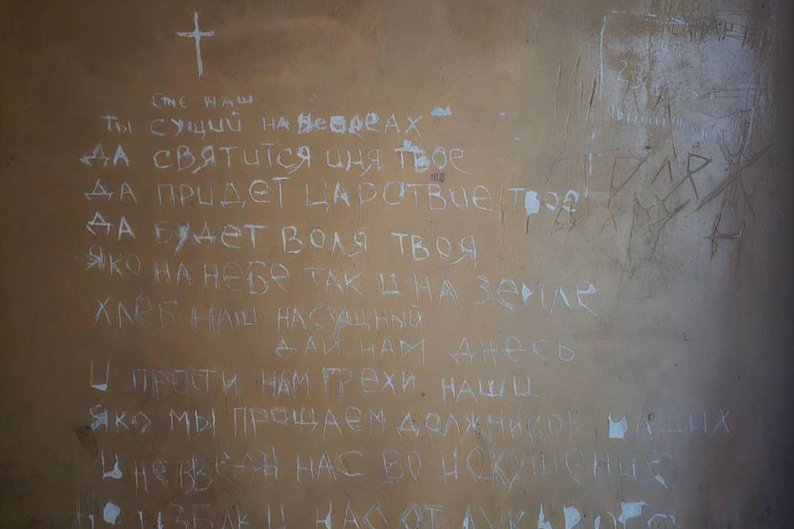 ОТЧЕ НАШ
ТЫ СУЩИЙ НА НЕБЕСАХ
ДА СВЯТИТСЯ ИМЯ ТВОЕ
ДА ПРИДЕТ ЦАРСТВИЕ ТВОЕ
ДА БУДЕТ ВОЛЯ ТВОЯ
ЯКО НА НЕБЕ ТАК И НА ЗЕМЛЕ
ХЛЕБ НАШ НАСУЩНЫЙ
ДАЙ НАМ ДНЕСЬ
И ПРОСТИ НАМ ГРЕХИ НАШИ
ЯКО МЫ ПРОЩАЕМ ДОЛЖНИКОВ НАШИХ
И НЕ ВВЕДИ НАС ВО ИСКУШЕНИЕ
НО ИЗБАВЬ НАС ОТ ЛУКАВОГО